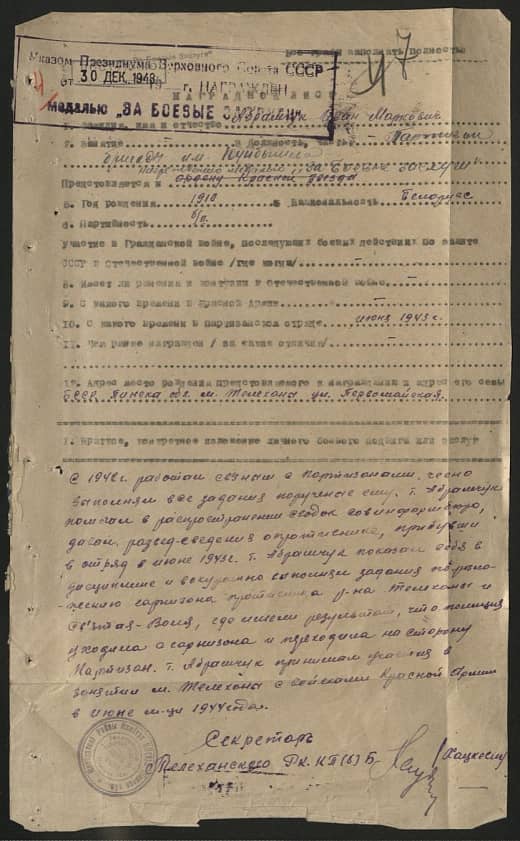 Указом Президиума Верховного Совета СССР
от 30 ДЕК. 1948 г. НАГРАЖДЕН
медалью „ЗА БОЕВЫЕ ЗАСЛУГИ“
47
НАГРАДНОЙ ЛИСТ
1. Фамилия, имя и отчество Абрамчук Иван Маркович
2. Звание - 3. Должность, часть Партизан
бригады им. Куйбышева
медалью „За боевые заслуги“
Представляется к ордену Красной Звезды
4. Год рождения 1910 5. Национальность Белорус
6. Партийность б/п
Участие в Гражданской войне, последующих боевых действиях по защите
СССР и Отечественной войне /где когда/ -
8. Имеет ли ранения и контузии в Отечественной войне -
9. С какого времени в Красной Армии -
10. С какого времени в партизанском отряде июня 1943 г.
11. Чем ранее награжден / за какие отличия/ -
12. Адрес место рождения представляемого к награждению и адрес его семьи
БССР Пинска обл. м. Телехона ул. Первомайская.
I. Краткое, конкретное изложение личного боевого подвига или заслуг
С 1942 г. работал связным с партизанами, чесно
выполнял все задания порученые ему. т. Абрамчук
помогал в распространении сводок совинформбюро,
давал развед-сведения о противнике, прибывши
в отряд в июне 1943 г. т. Абрамчук показал себя в
дисциплине и в окуратно выполнял задания по разло-
жению гарнизона противника р-на Телеханы и
Святая-Воля, где имели результат, что полиция
уходила с гарнизона и преходила на сторону
Партизан. т. Абрамчук принимал участия в
занятии м. Телехона с войсками Красной Армии
в июне м-ци 1944 года.
Секретарь
Телеханского РК КП(б)Б